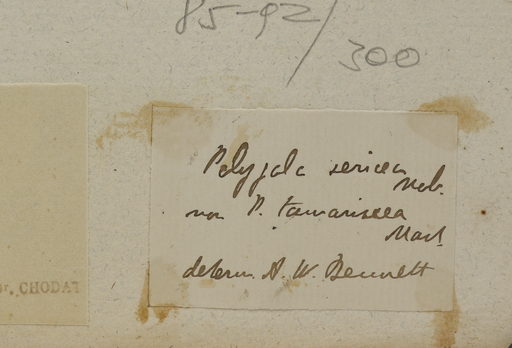 85-92/300
Polygala sericea
Nob.
non P. tamariscea
Mart
determ. A. W. Bennett
Dr. CHODAT